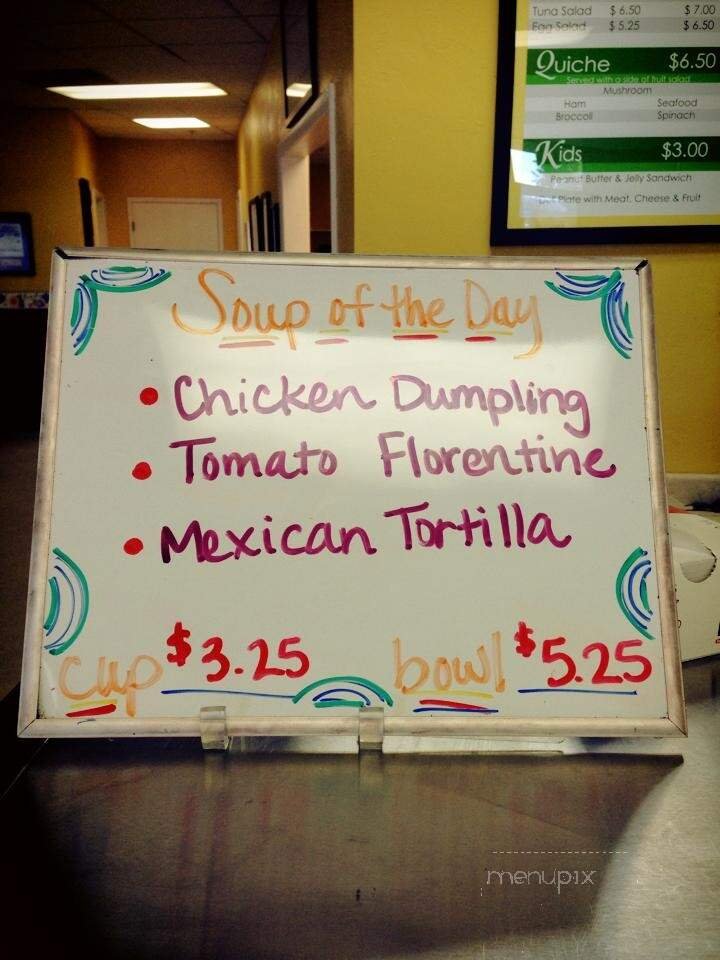 Tuna Salad $6.50 $7.00
Egg Salad $5.25 $6.50
Quiche $6.50
Served with a side of fruit salad
Mushroom
Ham Seafood
Broccoli Spinach
Kids $3.00
Peanut Butter & Jelly Sandwich
Plate with Meat, Cheese & Fruit
Soup of the Day
• Chicken Dumpling
• Tomato Florentine
• Mexican Tortilla
cup $3.25 bowl $5.25
menupix